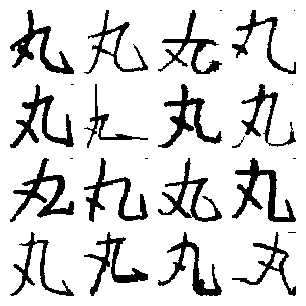 丸丸丸丸
丸丸丸丸
丸丸丸丸
丸丸丸丸